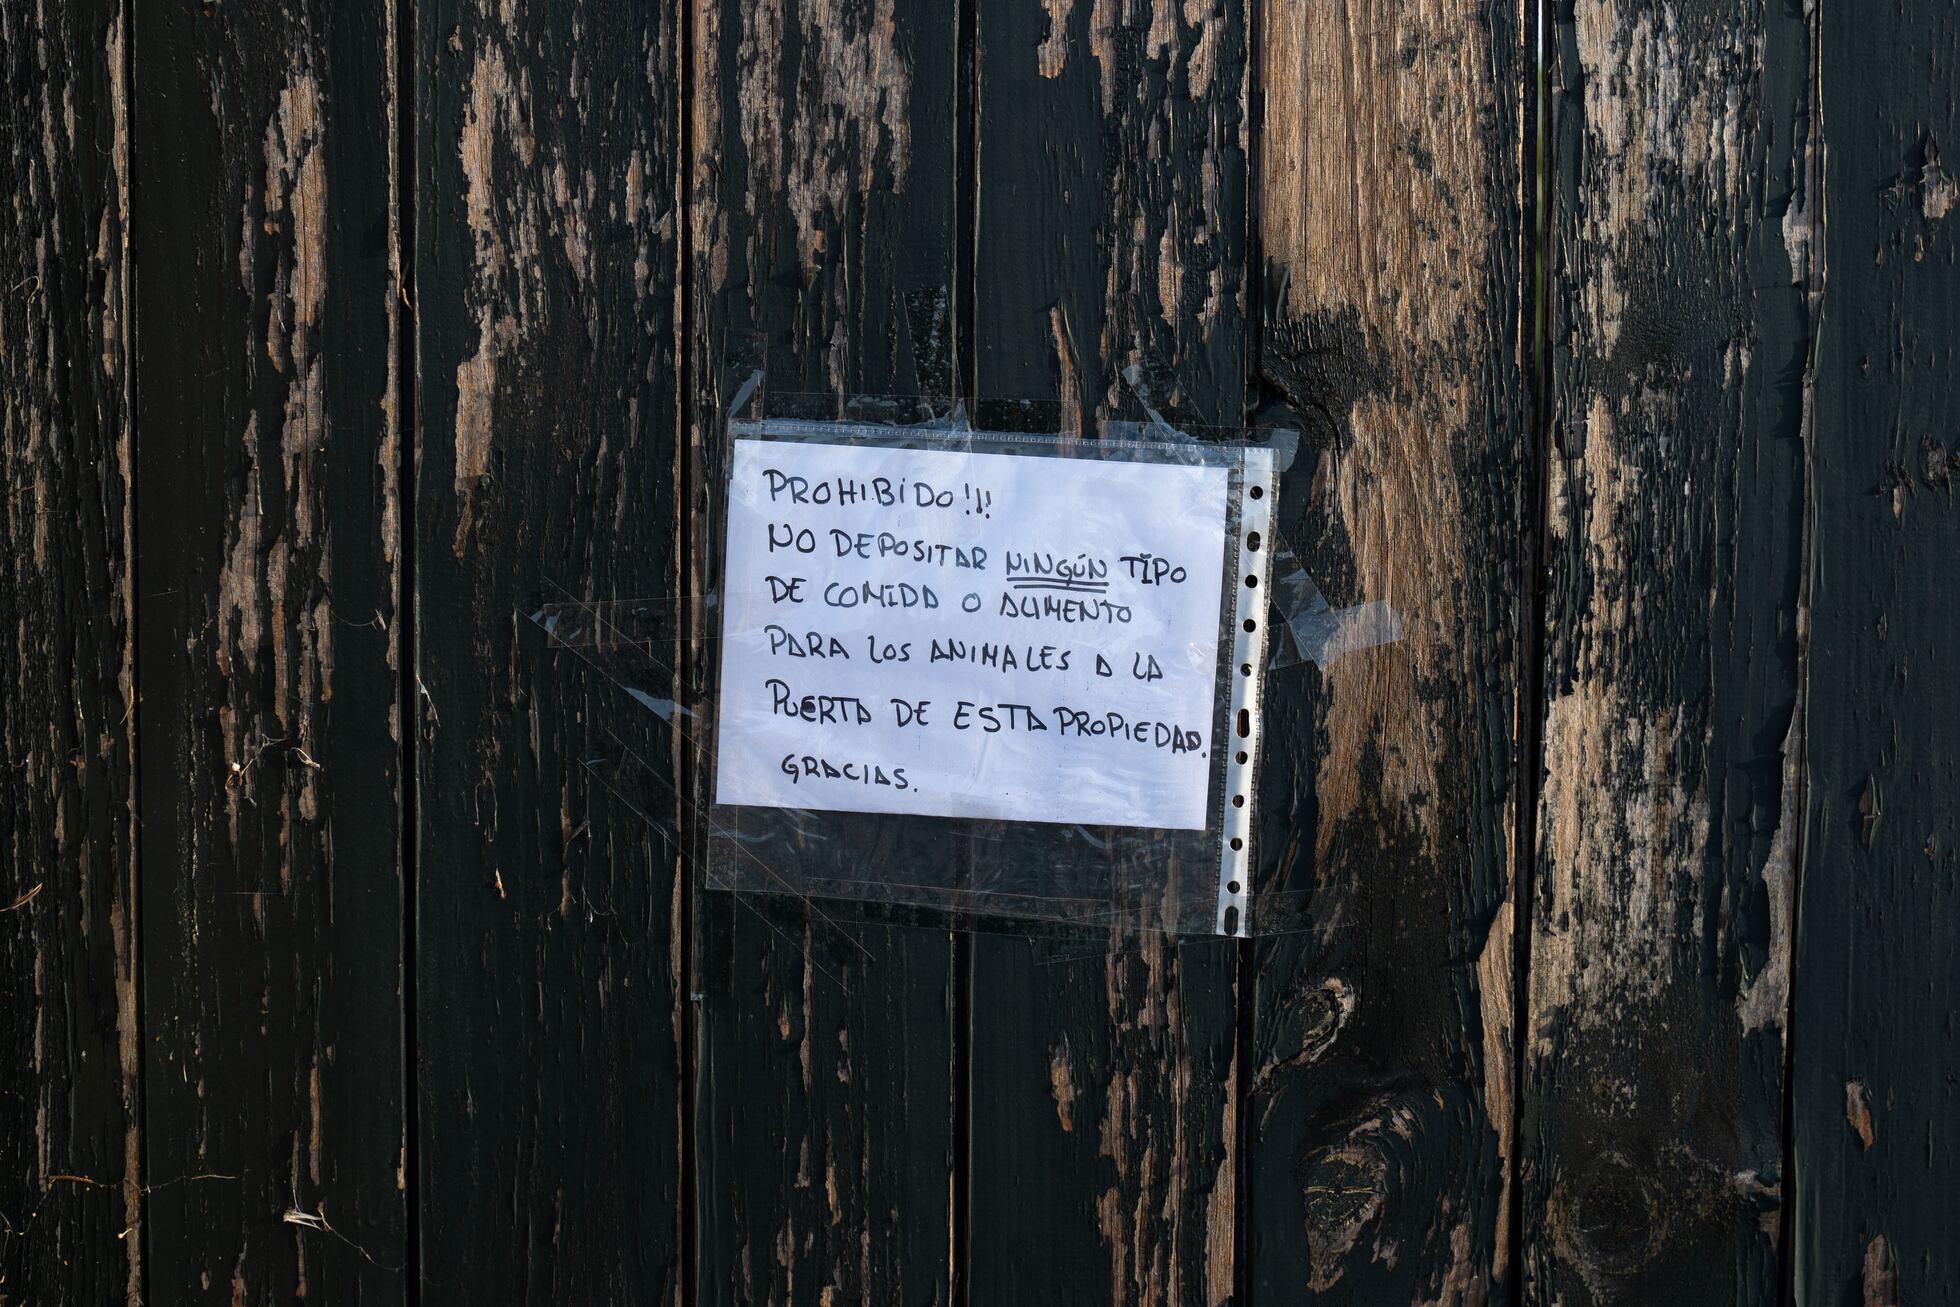 PROHIBIDO!!!
NO DEPOSITAR NINGÚN TIPO
DE COMIDA O ALIMENTO
PARA LOS ANIMALES A LA
PUERTA DE ESTA PROPIEDAD.
GRACIAS.